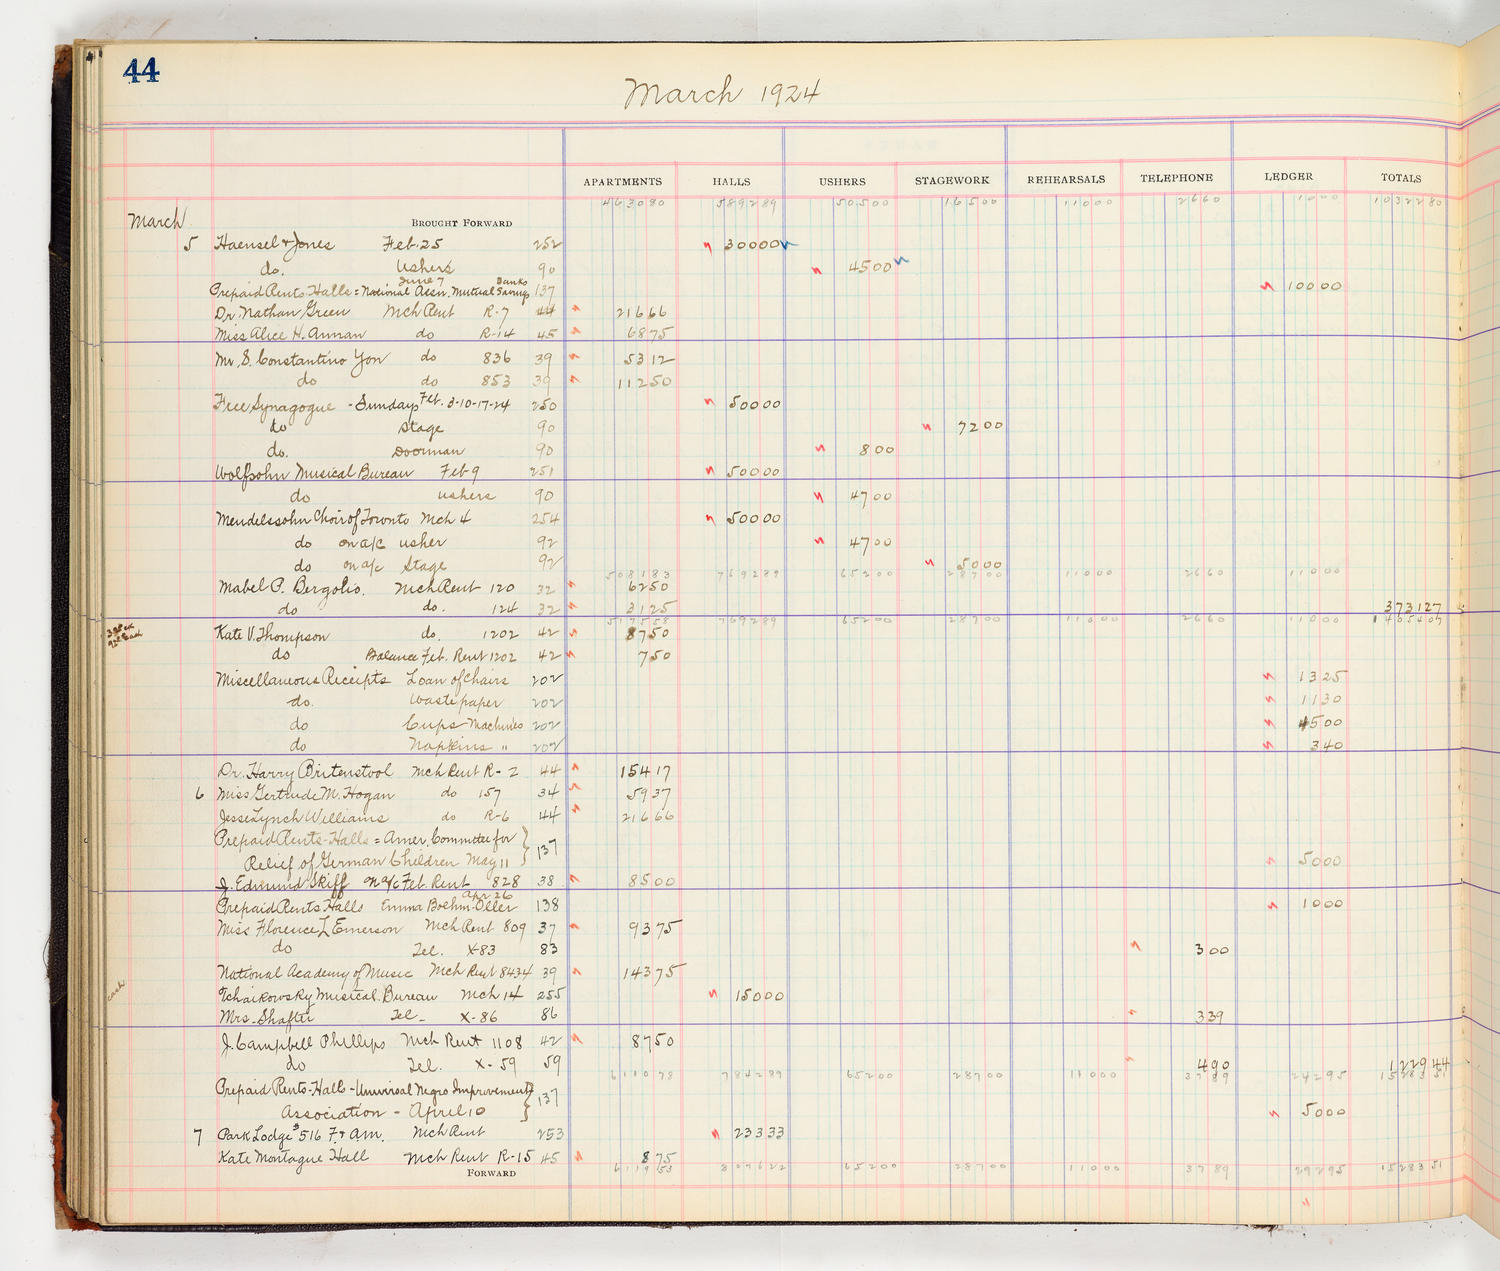 44
March 1924
APARTMENTS HALLS USHERS STAGEWORK REHEARSALS TELEPHONE LEDGER TOTALS
463080 589289 50500 16500 11000 2660 1000 1032280
March BROUGHT FORWARD
5 Haensel & Jones Feb. 25 252 30000
do. Ushers 90 4500
June 7 Banks
Prepaid Rents Halls = National Assn. Mutual Savings 137 10000
Dr. Nathan Green Mch Rent R-7 44 21666
Miss Alice H. Annan do R-14 45 6875
Mr. S. Constantino Yon do 836 39 5312
do do 853 39 11250
Free Synagogue - Sundays Feb. 3-10-17-24 250 50000
do Stage 90 7200
do. Doorman 90 800
Wolfsohn Musical Bureau Feb 9 251 50000
do ushers 90 4700
Mendelssohn Choir of Toronto Mch 4 254 50000
do on a/c usher 92 4700
do on a/c Stage 92 5000
508183 769289 65200 28700 11000 2660 11000
Mabel P. Bergolio. Mch Rent 120 32 6250
do do. 124 32 3125 373127
517558 769289 65200 28700 11000 2660 11000 1405407
Kate V. Thompson do. 1202 42 8750
do Balance Feb. Rent 1202 42 750
Miscellaneous Receipts Loan of Chairs 202 1325
do. Waste paper 202 1130
do Cups Machines 202 4500
do Napkins " 202 340
Dr. Harry Birtenstool Mch Rent R-2 44 15417
6 Miss Gertrude M. Hogan do 157 34 5937
Jesse Lynch Williams do R-6 44 21666
Prepaid Rents-Halls = Amer. Committee for
Relief of German Children May 11 137 5000
J. Edmund Skiff on a/c Feb. Rent 828 38 8500
Apr 26
Prepaid Rents Halls Emma Boehm-Oller 138 1000
Miss Florence L Emerson Mch Rent 809 37 9375
do Tel. X-83 83 300
National Academy of Music Mch Rent 8434 39 14375
cash
Tchaikowsky Musical Bureau Mch 14 255 15000
Mrs. Shafter Tel- X-86 86 339
J. Campbell Phillips Mch Rent 1108 42 8750
do Tel. X-59 59 490 122944
611078 784289 65200 28700 11000 3789 24295 1528351
Prepaid Rents-Halls - Universal Negro Improvement
Association - April 10 137 5000
7 Park Lodge #516 F. & Am. Mch Rent 253 23333
Kate Montague Hall Mch Rent R-15 45 875
FORWARD 611953 807622 65200 28700 11000 3789 29295 1528351